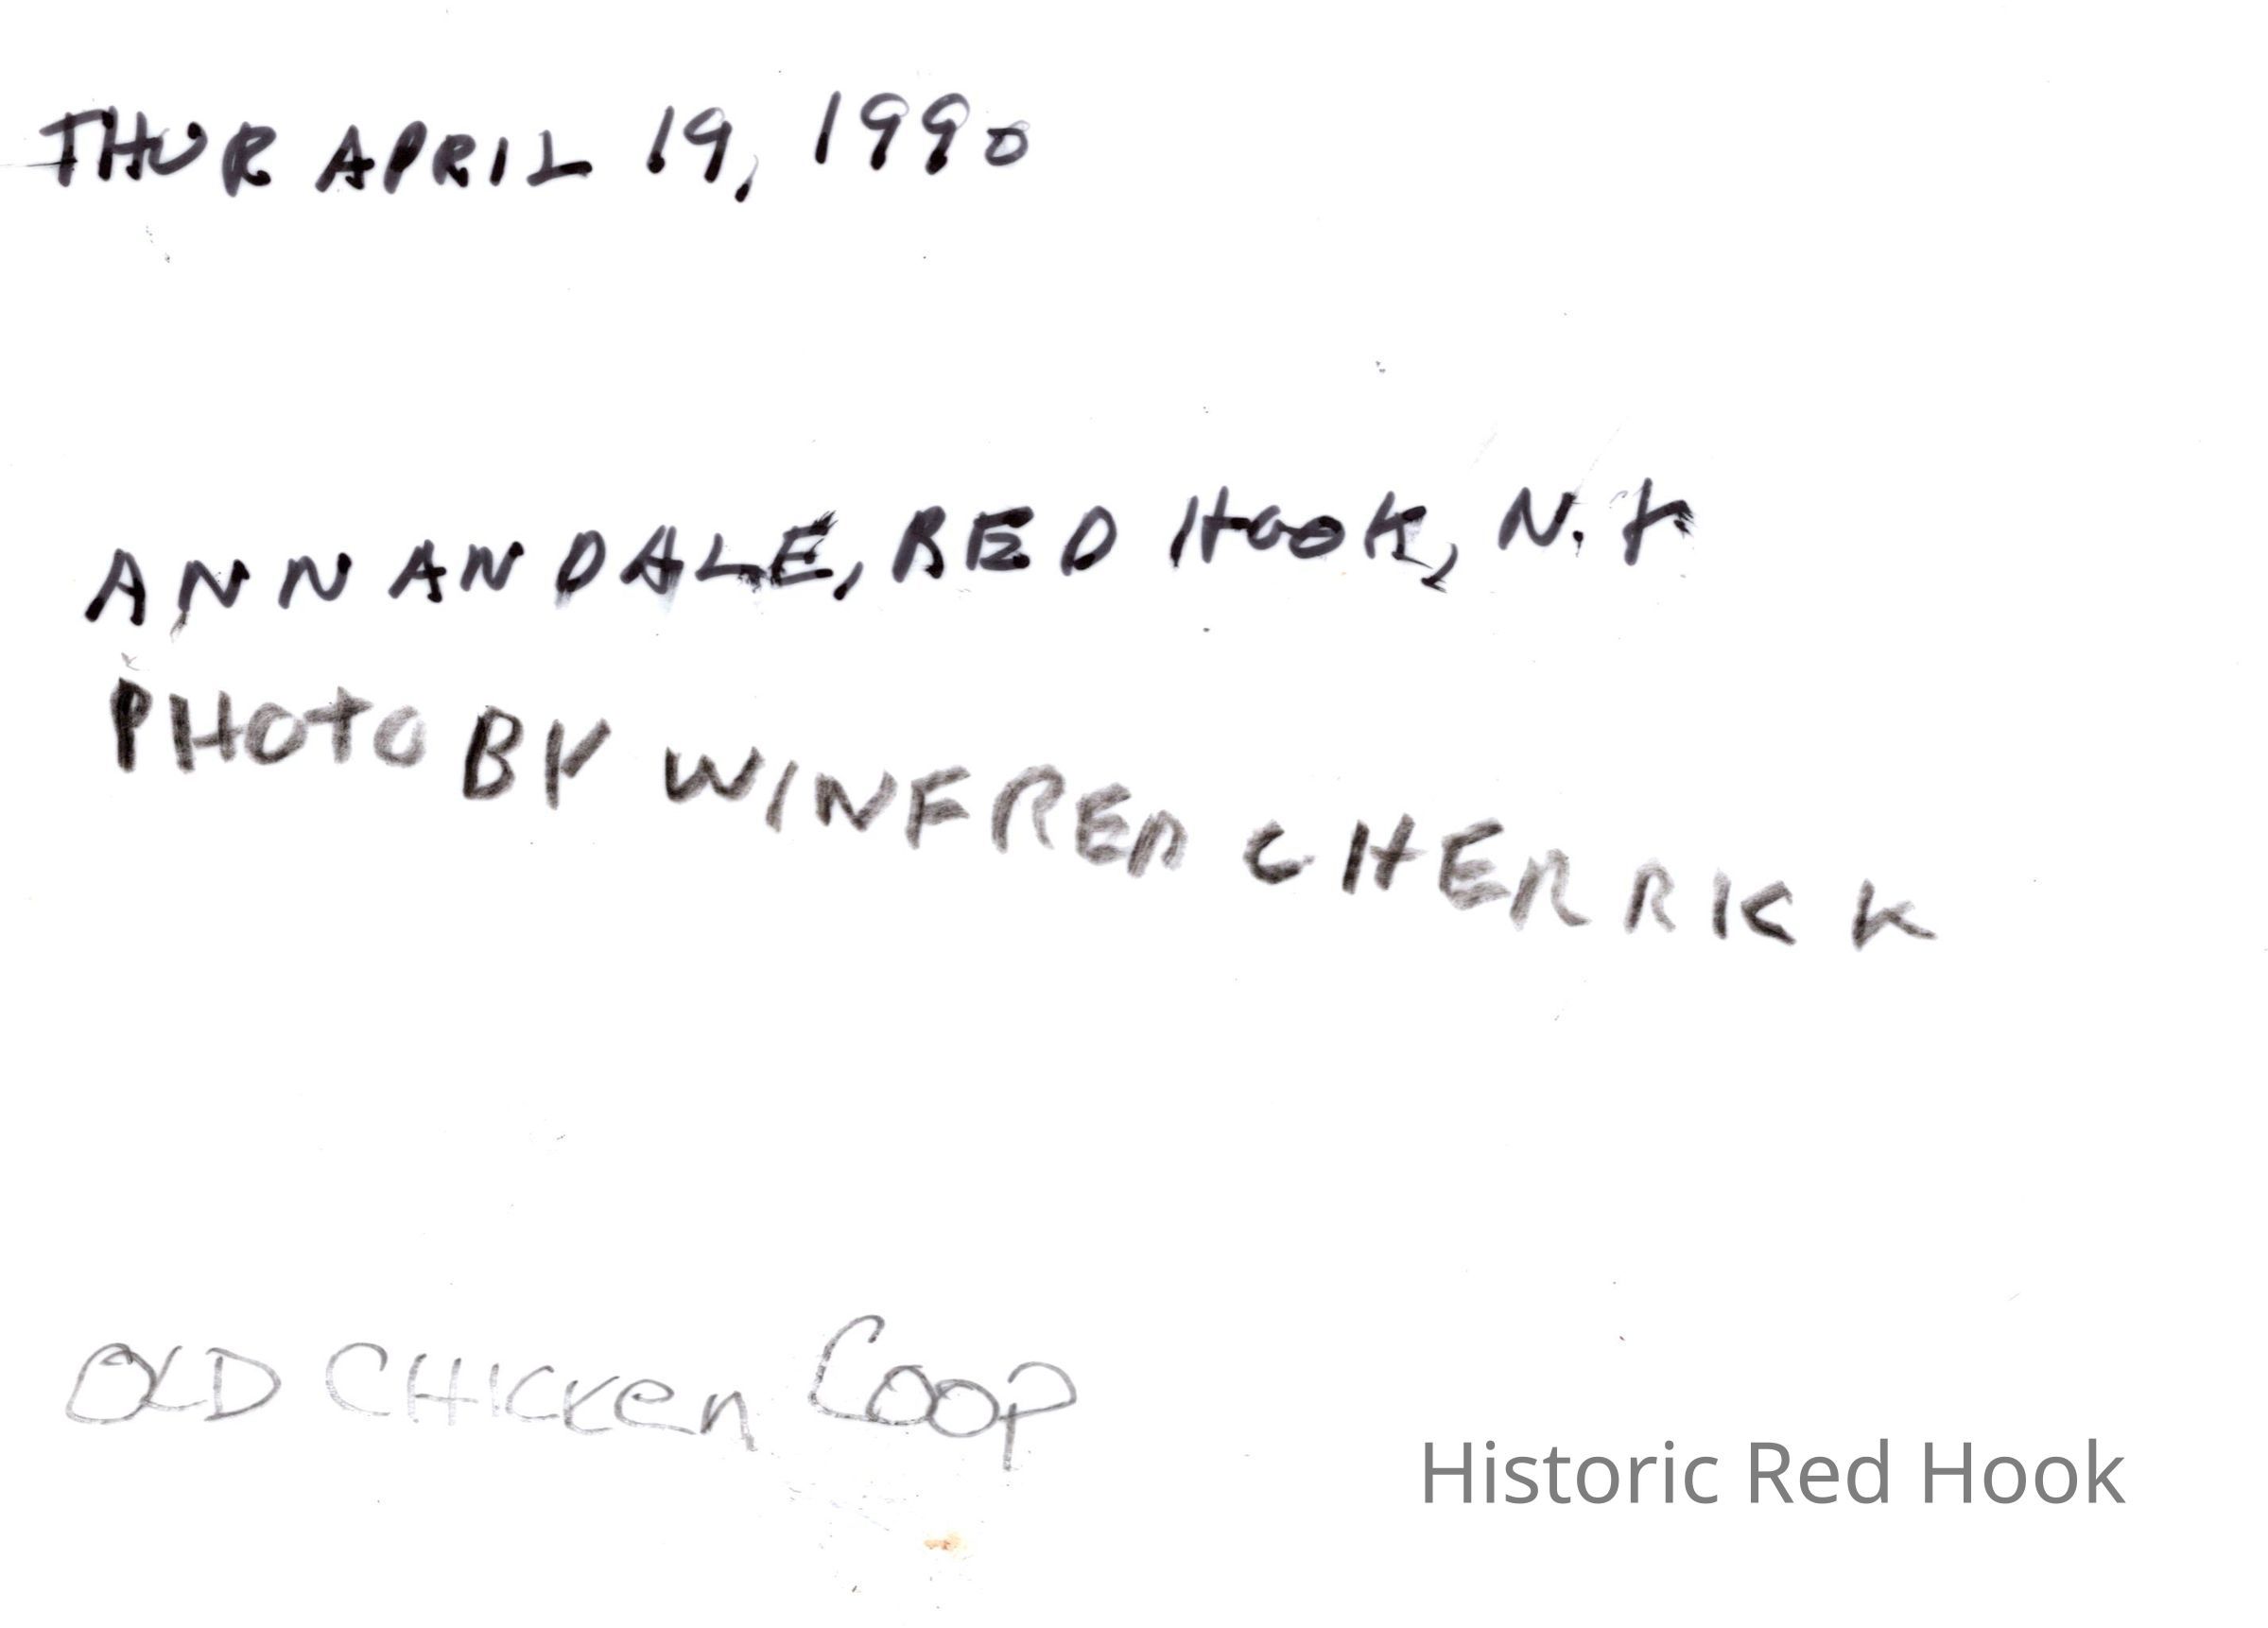 THUR APRIL 19, 1990
ANNANDALE, RED HOOK, N.Y
PHOTO BY WINFRED CHERRICK
OLD CHICKEN COOP
Historic Red Hook